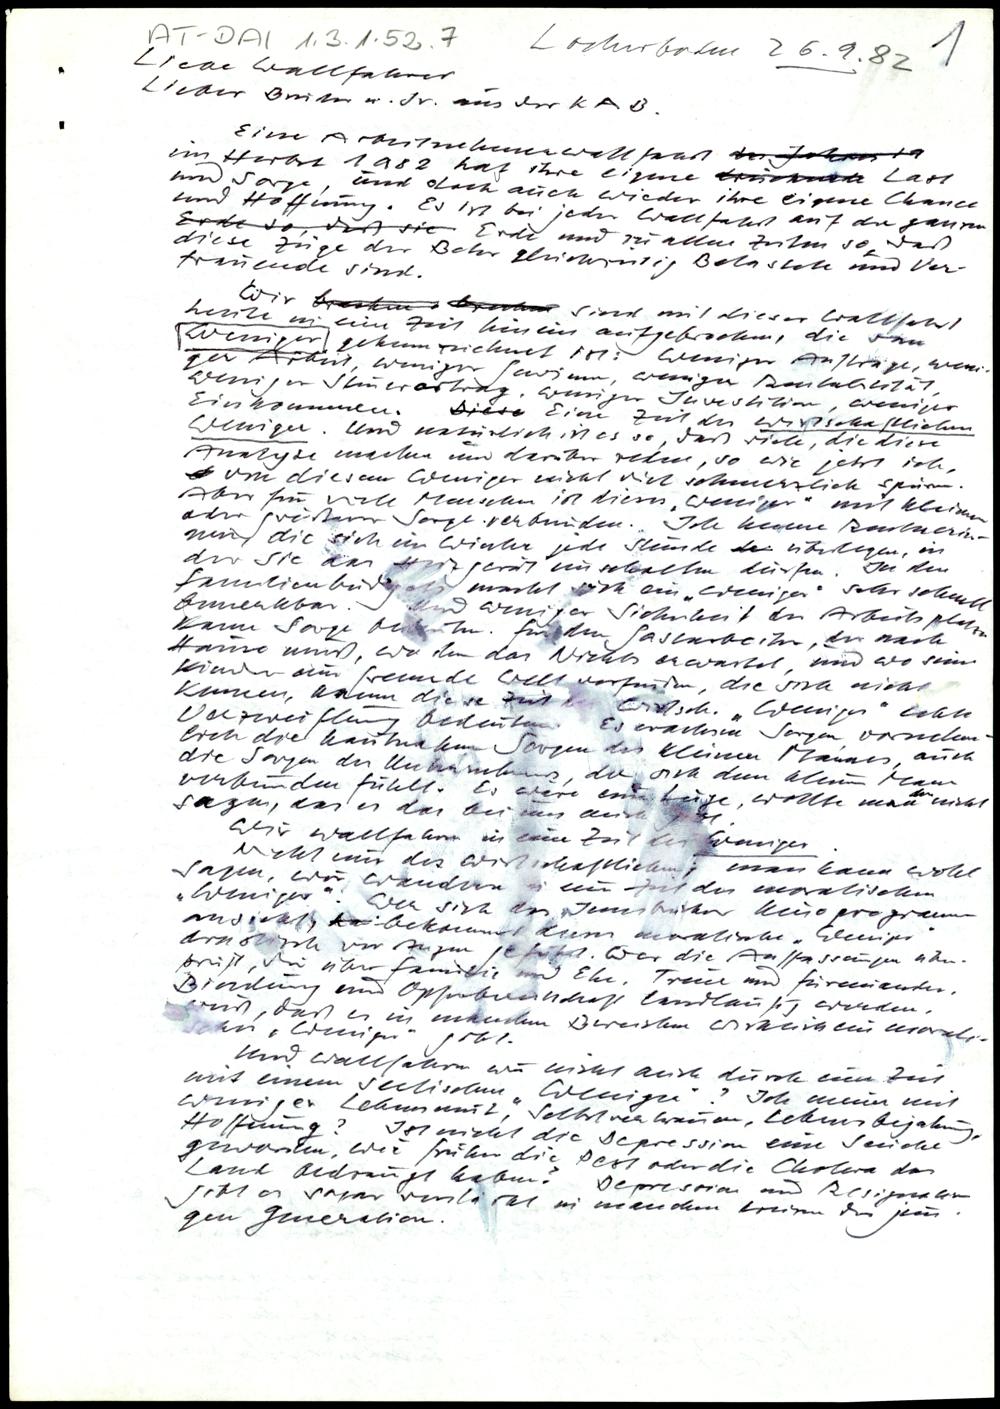 AT-DAI 1.3.1.52.7 Locherboden 26.9.82 1
Liebe Wallfahrer
Lieber Brüder u. Sr. aus der KAB.
Eine Arbeitnehmerwallfahrt des Jahres 19
im Herbst 1982 hat ihre eigene drückende Last
und Sorge, und doch auch wieder ihre eigene Chance
und Hoffnung. Es ist bei jeder Wallfahrt auf der ganzen
Erde so, daß sie Erde und zu allen Zeiten so, daß
diese Züge der Beter gleichzeitig Belastete und Ver-
trauende sind.
Wir brechen sind mit dieser Wallfahrt
heute in eine Zeit hinein aufgebrochen, die vom
Weniger gekennzeichnet ist: Weniger Aufträge, weni-
ger Arbeit, weniger Gewinn, weniger Rentabilität,
weniger Steuerertrag, weniger Investition, weniger
Einkommen. Diese Eine Zeit des wirtschaftlichen
Weniger. Und natürlich ist es so, daß viele, die diese
Analyse machen und darüber reden, so wie jetzt ich,
von diesem Weniger nicht viel schmerzlich spüren.
Aber für viele Menschen ist dieses "Weniger" mit kleiner
oder größerer Sorge verbunden. Ich kenne Rentnerin-
nen, die sich im Winter jede Stunde überlegen, in
der sie das Heizgerät einschalten dürfen. In den
Familienbudgets macht sich ein "Weniger" sehr schnell
bemerkbar. Und weniger Sicherheit des Arbeitsplatzes
kann Sorge bereiten. Für den Gastarbeiter, der nach
Hause muß, wo ihn das Nichts erwartet, und wo seine
Kinder eine fremde Welt vorfinden, die sie nicht
kennen, kann diese Zeit des wirtsch. "Weniger" echte
Verzweiflung bedeuten. Es wachsen Sorgen vornehm-
lich die hautnahen Sorgen des kleinen Mannes, auch
die Sorgen des Unternehmers, der sich dem kleinen Mann
verbunden fühlt. Es wäre eine Lüge, wollte man nicht
sagen, daß es das bei uns auch gibt.
Wir wallfahren in eine Zeit des Weniger.
Nicht nur des wirtschaftlichen, man kann wohl
sagen, wir wandern in eine Zeit des moralischen
"Weniger". Wer sich das Innsbrucker Kinoprogramm
ansieht, bekommt dieses moralische "Weniger"
drastisch vor Augen geführt. Wer die Auffassungen über-
prüft, die über Familie und Ehe, Treue und füreinander,
Bindung und Opferbereitschaft landläufig werden,
weiß, daß es in manchen Bereichen wirklich ein morali-
sches "Weniger" gibt.
Und wallfahren wir nicht auch durch eine Zeit
mit einem seelischen "Weniger"? Ich meine mit
weniger Lebensmut, Selbstvertrauen, Lebensbejahung,
Hoffnung? Ist nicht die Depression eine Seuche
geworden, wie früher die Pest oder die Cholera das
Land bedrängt haben? Depression und Resignation
gibt es sogar verstärkt in manchen Kreisen der jun-
gen Generation.